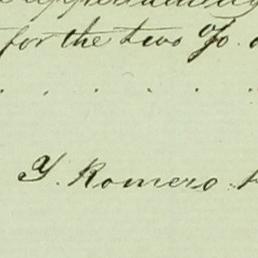 for the two %.
Y. Romero